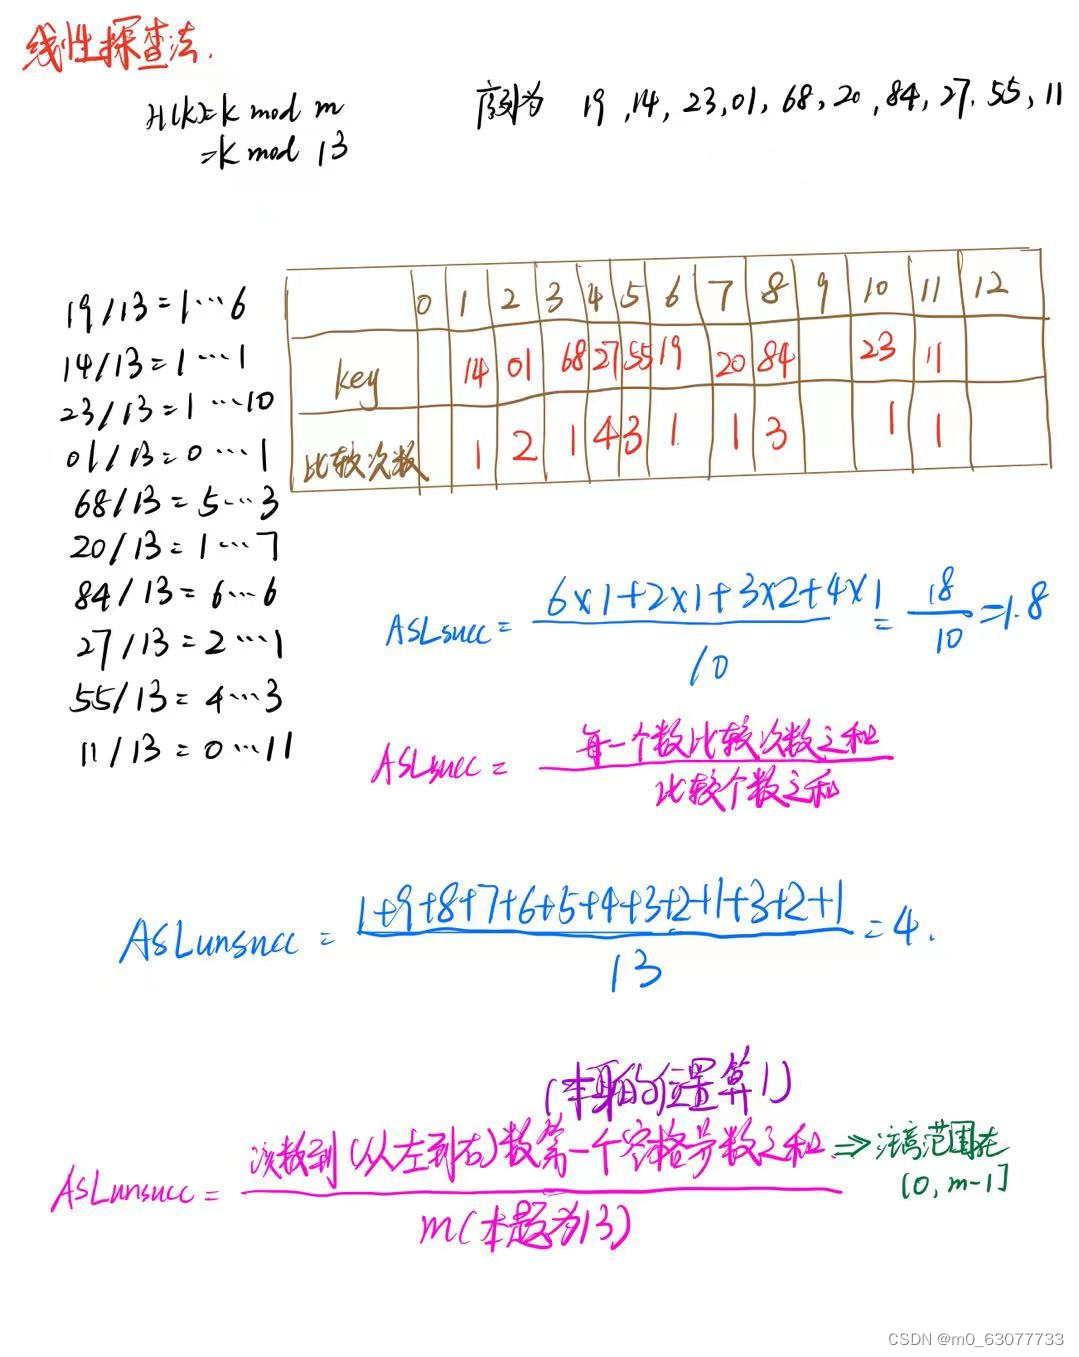 线性探查法.
H(k)=k mod m
=k mod 13
序列为 19,14,23,01,68,20,84,27.55,11
19/13=1…6
14/13=1…1
23/13=1…10
01/13=0…1
68/13=5…3
20/13=1…7
84/13=6…6
27/13=2…1
55/13=4…3
11/13=0…11
0 1 2 3 4 5 6 7 8 9 10 11 12
key 14 01 68 27 55 19 20 84 23 11
比较次数 1 2 1 4 3 1 1 3 1 1
ASLsucc = 6×1+2×1+3×2+4×1 / 10 = 18 / 10 =1.8
ASLsucc = 每一个数比较次数之和 / 比较个数之和
ASLunsucc = 1+9+8+7+6+5+4+3+2+1+3+2+1 / 13 =4.
(本身的位置算1)
ASLunsucc = 次数到(从左到右)数第一个空格号数之和 / m(本题为13)
⇒注意范围在
[0,m-1]
CSDN @m0_63077733